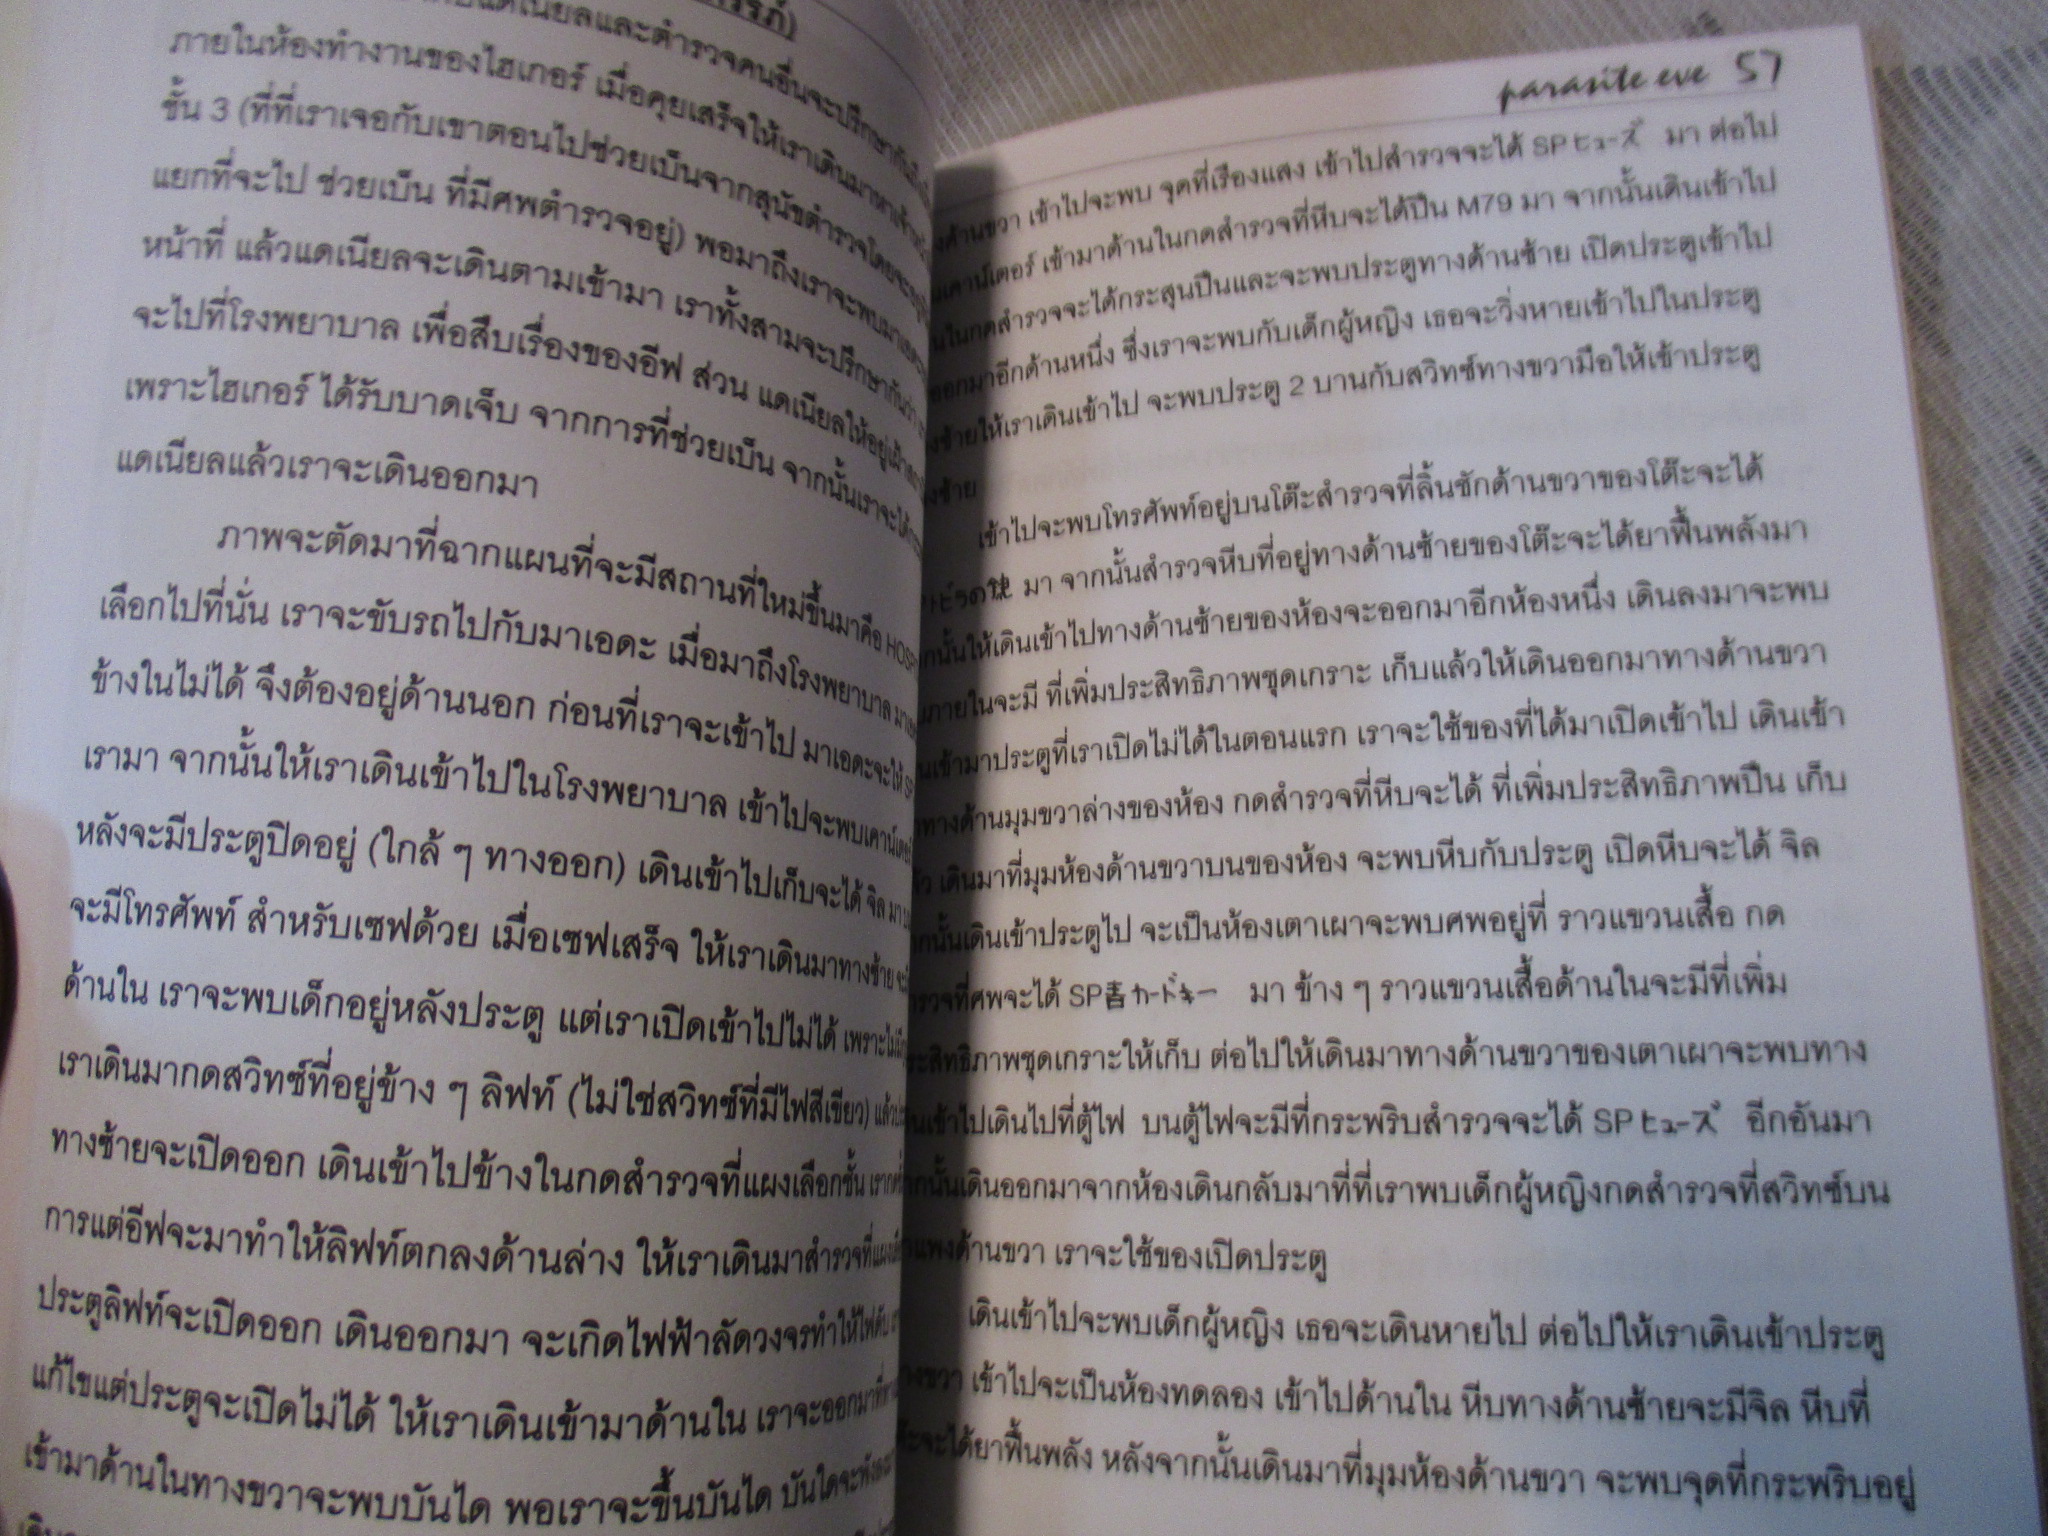 ภายในห้องทำงานของไฮเกอร์ เมื่อคุยเสร็จให้เราเดินมาหา
ชั้น 3 (ที่ที่เราเจอกับเขาตอนไปช่วยเบ็นจากสุนัขตำรวจโดยจะ
แยกที่จะไป ช่วยเบ็น ที่มีศพตำรวจอยู่) พอมาถึงเราจะพบ
หน้าที่ แล้วแดเนียลจะเดินตามเข้ามา เราทั้งสามจะปรึกษากันว่า
จะไปที่โรงพยาบาล เพื่อสืบเรื่องของอีฟ ส่วน แดเนียลให้อยู่
เพราะไฮเกอร์ ได้รับบาดเจ็บ จากการที่ช่วยเบ็น จากนั้นเราจะได้
แดเนียลแล้วเราจะเดินออกมา
ภาพจะตัดมาที่ฉากแผนที่จะมีสถานที่ใหม่ขึ้นมาคือ
เลือกไปที่นั่น เราจะขับรถไปกับมาเอดะ เมื่อมาถึงโรงพยาบาล
ข้างในไม่ได้ จึงต้องอยู่ด้านนอก ก่อนที่เราจะเข้าไป มาเอดะจะให้
เรามา จากนั้นให้เราเดินเข้าไปในโรงพยาบาล เข้าไปจะพบเคาน์เตอร์
หลังจะมีประตูปิดอยู่ (ใกล้ ๆ ทางออก) เดินเข้าไปเก็บจะได้ จิล มา
จะมีโทรศัพท์ สำหรับเซฟด้วย เมื่อเซฟเสร็จ ให้เราเดินมาทางซ้าย
ด้านใน เราจะพบเด็กอยู่หลังประตู แต่เราเปิดเข้าไปไม่ได้
เราเดินมากดสวิทซ์ที่อยู่ข้าง ๆ ลิฟท์ (ไม่ใช่สวิทซ์ที่มีไฟสีเขียว)
ทางซ้ายจะเปิดออก เดินเข้าไปข้างในกดสำรวจที่แผงเลือกชั้น
การแต่อีฟจะมาทำให้ลิฟท์ตกลงด้านล่าง ให้เราเดินมาสำรวจที่
ประตูลิฟท์จะเปิดออก เดินออกมา จะเกิดไฟฟ้าลัดวงจรทำให้
แก้ไขแต่ประตูจะเปิดไม่ได้ ให้เราเดินเข้ามาด้านใน เราจะออกมา
เข้ามาด้านในทางขวาจะพบบันได พอเราจะขึ้นบันได
parasite eve 57
ด้านขวา เข้าไปจะพบ จุดที่เรืองแสง เข้าไปสำรวจจะได้ SP ヒューズ มา ต่อไป
เข้ามาด้านในกดสำรวจที่หีบจะได้ปืน M79 มา จากนั้นเดินเข้าไป
ในกดสำรวจจะได้กระสุนปืนและจะพบประตูทางด้านซ้าย เปิดประตูเข้าไป
ออกมาอีกด้านหนึ่ง ซึ่งเราจะพบกับเด็กผู้หญิง เธอจะวิ่งหายเข้าไปในประตู
ซ้ายให้เราเดินเข้าไป จะพบประตู 2 บานกับสวิทซ์ทางขวามือให้เข้าประตู
เข้าไปจะพบโทรศัพท์อยู่บนโต๊ะสำรวจที่ลิ้นชักด้านขวาของโต๊ะจะได้
มา จากนั้นสำรวจหีบที่อยู่ทางด้านซ้ายของโต๊ะจะได้ยาฟื้นพลังมา
ให้เดินเข้าไปทางด้านซ้ายของห้องจะออกมาอีกห้องหนึ่ง เดินลงมาจะพบ
ภายในจะมี ที่เพิ่มประสิทธิภาพชุดเกราะ เก็บแล้วให้เดินออกมาทางด้านขวา
เข้ามาประตูที่เราเปิดไม่ได้ในตอนแรก เราจะใช้ของที่ได้มาเปิดเข้าไป เดินเข้า
ทางด้านมุมขวาล่างของห้อง กดสำรวจที่หีบจะได้ ที่เพิ่มประสิทธิภาพปืน เก็บ
เดินมาที่มุมห้องด้านขวาบนของห้อง จะพบหีบกับประตู เปิดหีบจะได้ จิล
เดินเข้าประตูไป จะเป็นห้องเตาเผาจะพบศพอยู่ที่ ราวแขวนเสื้อ กด
ที่ศพจะได้ SP青カードキー มา ข้าง ๆ ราวแขวนเสื้อด้านในจะมีที่เพิ่ม
ประสิทธิภาพชุดเกราะให้เก็บ ต่อไปให้เดินมาทางด้านขวาของเตาเผาจะพบทาง
เข้าไปเดินไปที่ตู้ไฟ บนตู้ไฟจะมีที่กระพริบสำรวจจะได้ SP ヒューズ อีกอันมา
เดินออกมาจากห้องเดินกลับมาที่ที่เราพบเด็กผู้หญิงกดสำรวจที่สวิทซ์บน
ด้านขวา เราจะใช้ของเปิดประตู
เดินเข้าไปจะพบเด็กผู้หญิง เธอจะเดินหายไป ต่อไปให้เราเดินเข้าประตู
เข้าไปจะเป็นห้องทดลอง เข้าไปด้านใน หีบทางด้านซ้ายจะมีจิล หีบที่
จะได้ยาฟื้นพลัง หลังจากนั้นเดินมาที่มุมห้องด้านขวา จะพบจุดที่กระพริบอยู่